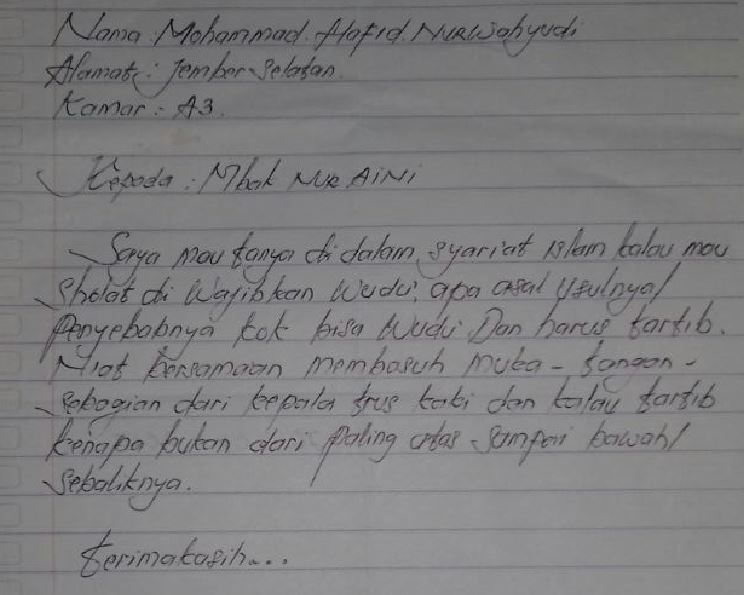 Nama : Mohammad. Hafid. NURWahyudi
Alamat : Jember-Selatan.
Kamar : A3.
Kepada : Mbak NUR AiNi
Saya mau tanya di dalam syariat islam kalau mau
Sholat di wajibkan wudu', apa asal usulnya/
Penyebabnya kok bisa wudu' Dan harus tartib.
Niat bersamaan membasuh muka - tangan -
Sebagian dari kepala trus kaki dan kalau tartib
kenapa bukan dari paling atas sampai bawah/
Sebaliknya.
terimakasih...